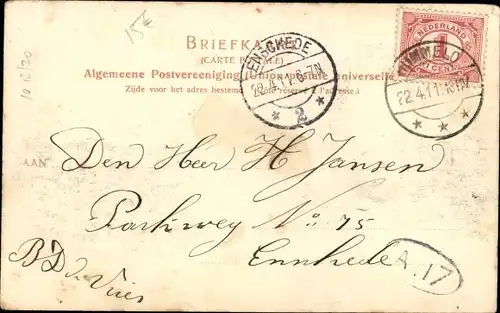 15k
10/12/20
BRIEFKAART
(CARTE POSTALE)
Algemeene Postvereeniging (Union postale universelle)
Zijde voor het adres bestemd. (Côté réservé à l'adresse.)
ENSCHEDE
22.4.11.6-7N
2
NEDERLAND
1
CENT
22.4.11
AAN
Den Heer H Jansen
Parkweg No: 75
Ennchede
BD de Vries
A.17